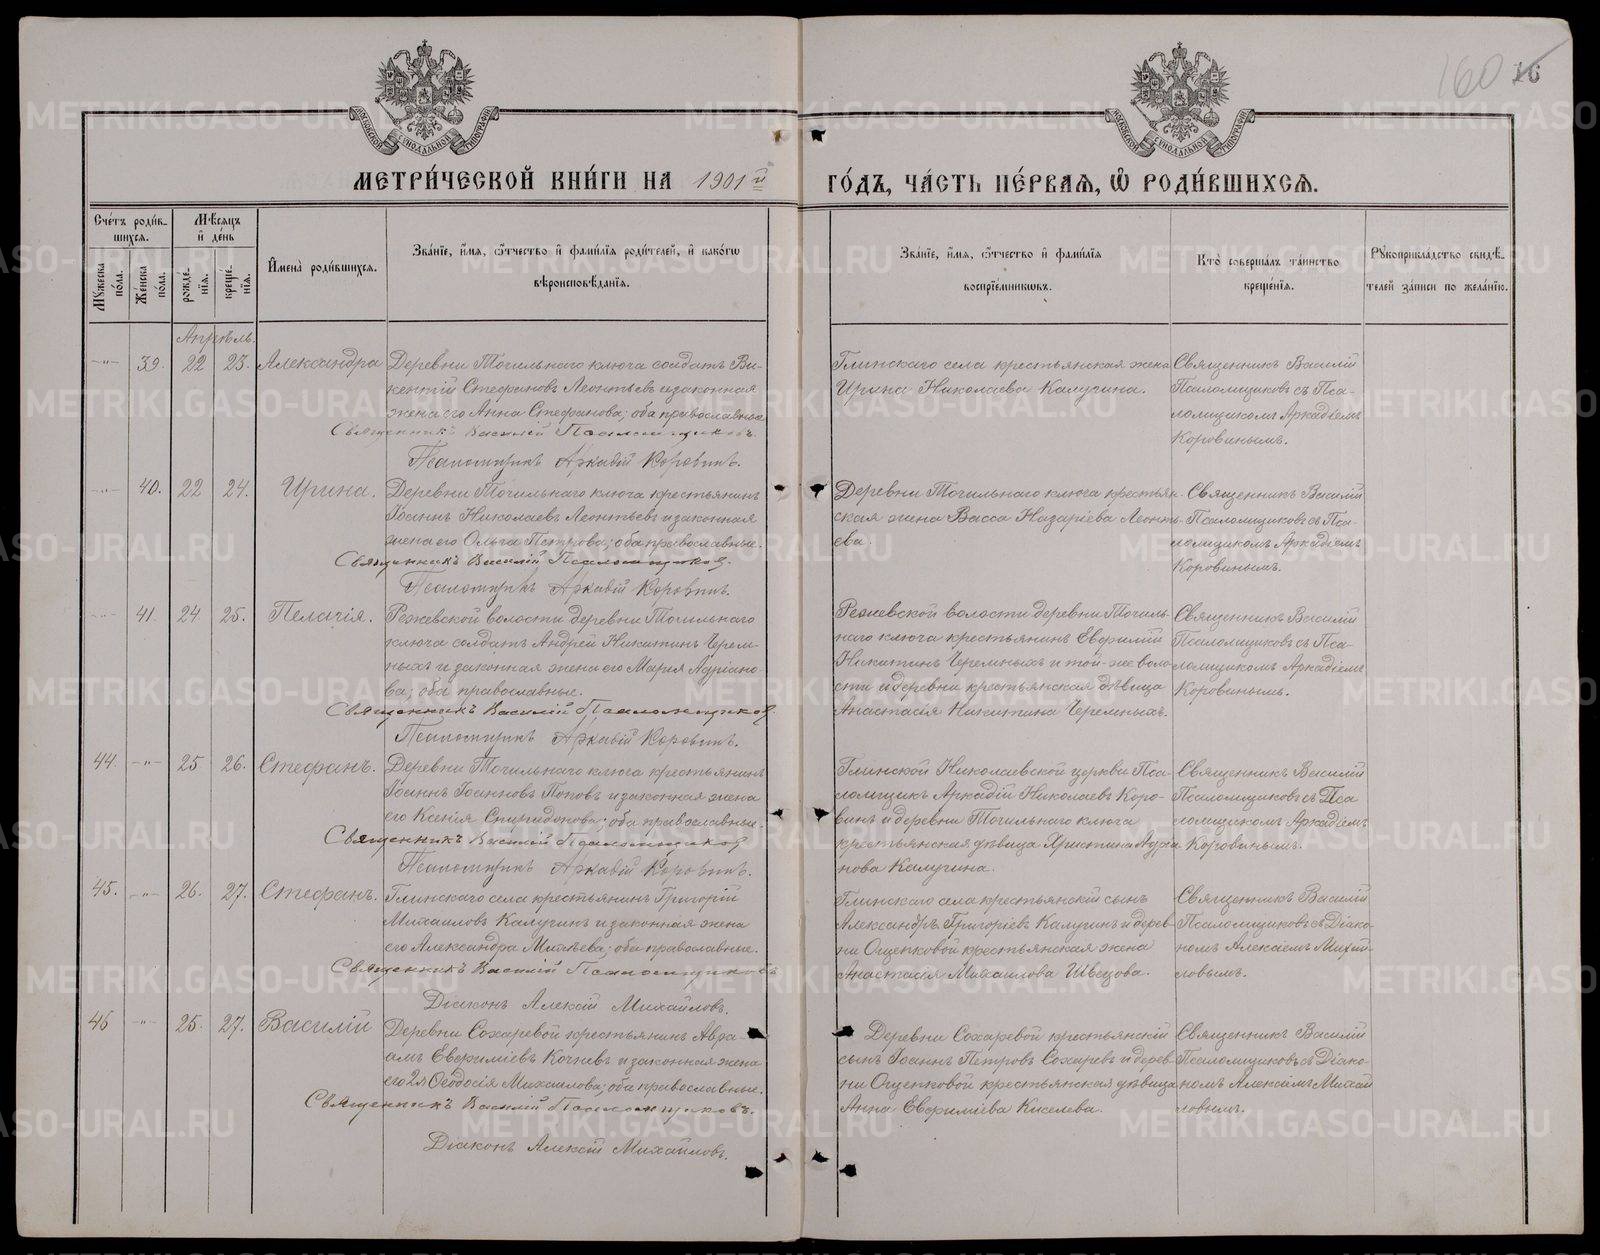 160 16
МЕТРИ́ЧЕСКОЙ КНИ́ГИ НА 1901 й ГО́ДЪ, ЧА́СТЬ ПЕ́РВАЯ, Ѽ РОДИ́ВШИХСЯ.
Сче́тъ роди́в-
шихся.
Мѣ́сяцъ
и҆ де́нь
Мꙋ́жеска по́ла.
Же́нска по́ла.
рожде́-
нїя.
креще́-
нїя.
И҆мена̀ роди́вшихся.
Зва́нїе, и҆́мя, ѻ҆́тчество и҆ фами́лїя роди́телей, и҆ како́гѡ
вѣроисповѣ́данїя.
Зва́нїе, и҆́мя, ѻ҆́тчество и҆ фами́лїя
воспрїе́мникѡвъ.
Кто̀ соверша́лъ та́инство
креще́нїя.
Рꙋкоприкла́дство свидѣ́-
телей за́писи по жела́нїю.
Апрѣль.
-"- 39. 22 23. Александра
Деревни Точильнаго ключа солдатъ Ви-
кентій Стефановъ Леонтьевъ и законная
жена его Анна Стефанова; оба православные
Священникъ Василій Псаломщиковъ.
Псаломщикъ Аркадій Коровинъ.
Глинскаго села крестьянская жена
Ирина Николаева Калугина.
Священникъ Василій
Псаломщиковъ съ Пса-
ломщикомъ Аркадіемъ
Коровинымъ.
-"- 40. 22 24. Ирина.
Деревни Точильнаго ключа крестьянинъ
Іоаннъ Николаевъ Леонтьевъ и законная
жена его Ольга Петрова; оба православные.
Священникъ Василій Псаломщиковъ.
Псаломщикъ Аркадій Коровинъ.
Деревни Точильнаго ключа крестьян-
ская жена Васса Назаріева Леонть-
ева.
Священникъ Василій
Псаломщиковъ съ Пса-
ломщикомъ Аркадіемъ
Коровинымъ.
-"- 41. 24 25. Пелагія.
Режевской волости деревни Точильнаго
ключа солдатъ Андрей Никитинъ Черем-
ныхъ и законная жена его Марія Адріано-
ва; оба православные.
Священникъ Василій Псаломщиковъ
Псаломщикъ Аркадій Коровинъ.
Режевской волости деревни Точиль-
наго ключа крестьянинъ Евфимій
Никитинъ Черемныхъ и той-же воло-
сти и деревни крестьянская дѣвица
Анастасія Никитина Черемныхъ.
Священникъ Василій
Псаломщиковъ съ Пса-
ломщикомъ Аркадіемъ
Коровинымъ.
44. -"- 25 26. Стефанъ.
Деревни Точильнаго ключа крестьянинъ
Іоаннъ Іоанновъ Поповъ и законная жена
его Ксенія Спиридонова; оба православные.
Священникъ Василій Псаломщиковъ
Псаломщикъ Аркадій Коровинъ.
Глинской Николаевской церкви Пса-
ломщикъ Аркадій Николаевъ Коро-
винъ и деревни Точильнаго ключа
крестьянская дѣвица Христина Адріа-
нова Калугина.
Священникъ Василій
Псаломщиковъ съ Пса
ломщикомъ Аркадіемъ
Коровинымъ.
45. -"- 26. 27. Стефанъ.
Глинскаго села крестьянинъ Григорій
Михаиловъ Калугинъ и законная жена
его Александра Матѳеева; оба православные.
Священникъ Василій Псаломщиковъ
Діаконъ Алексій Михайловъ.
Глинскаго села крестьянскій сынъ
Александръ Григоріевъ Калугинъ и дерев-
ни Ощепковой крестьянская жена
Анастасія Михаилова Швецова.
Священникъ Василій
Псаломщиковъ съ Діако-
номъ Алексіемъ Михай-
ловымъ.
46 -"- 25. 27. Василій
Деревни Сохаревой крестьянинъ Авра-
амъ Евфиміевъ Кочневъ и законная жена
его 2я Ѳеодосія Михаилова; оба православные.
Священникъ Василій Псаломщиковъ.
Діаконъ Алексій Михайловъ.
Деревни Сохаревой крестьянскій
сынъ Іоаннъ Петровъ Сохаревъ и дерев-
ни Ощепковой крестьянская дѣвица
Анна Евфиміева Киселева.
Священникъ Василій
Псаломщиковъ съ Діако-
номъ Алексіемъ Михай
ловымъ.
METRIKI.GASO-URAL.RU